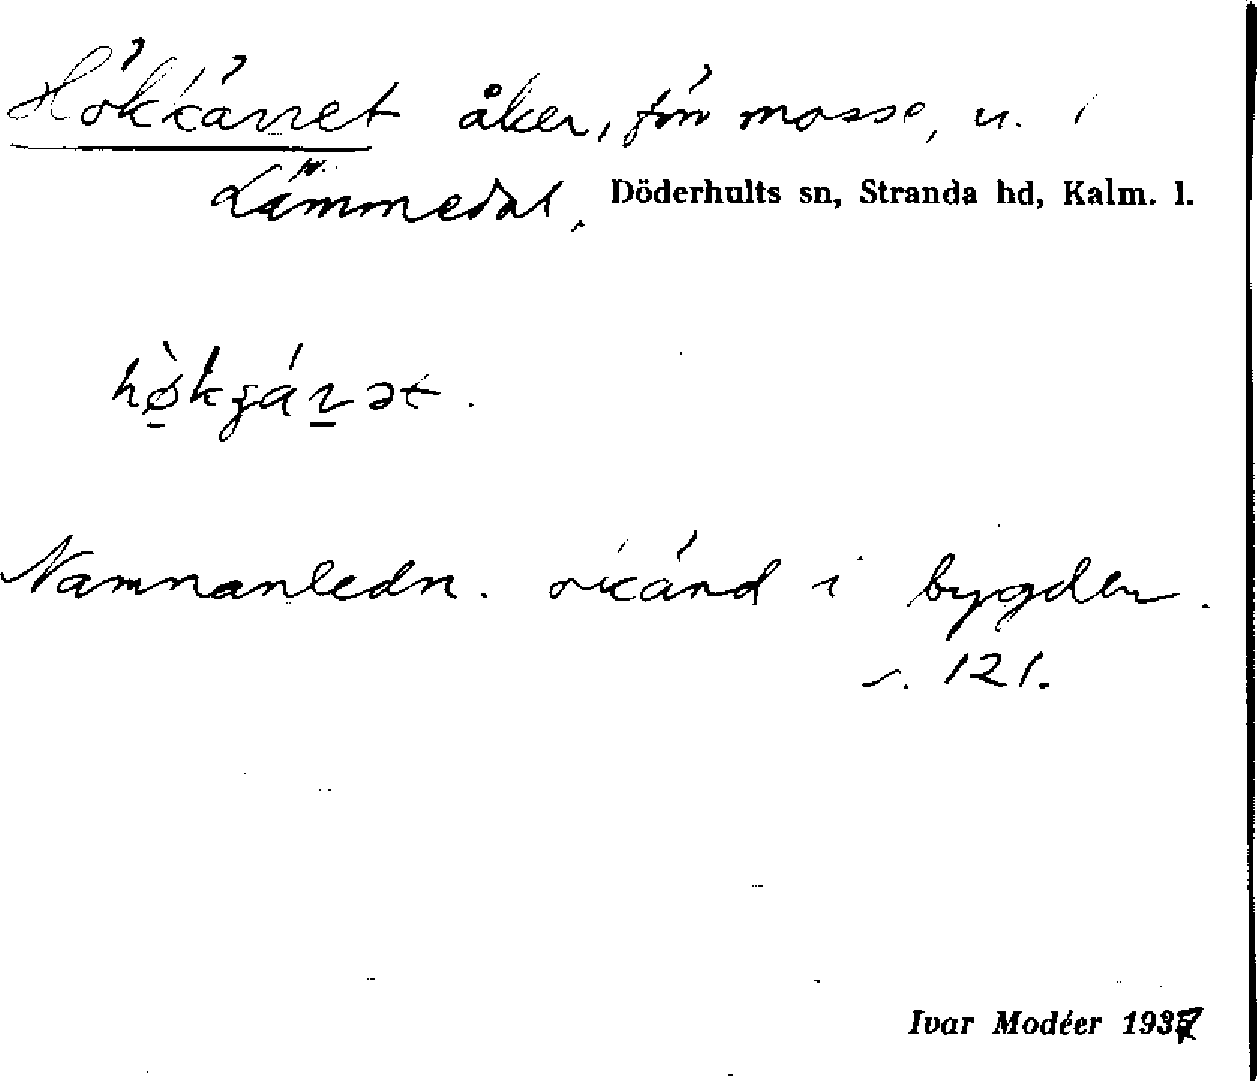 Hökkärret åker, förr mosse, u. i
Lämmedal, Döderhults sn, Stranda hd, Kalm. l.
hø̀kɟárət.
Namnanledn. okänd i bygden.
s. 121.
Ivar Modéer 1937